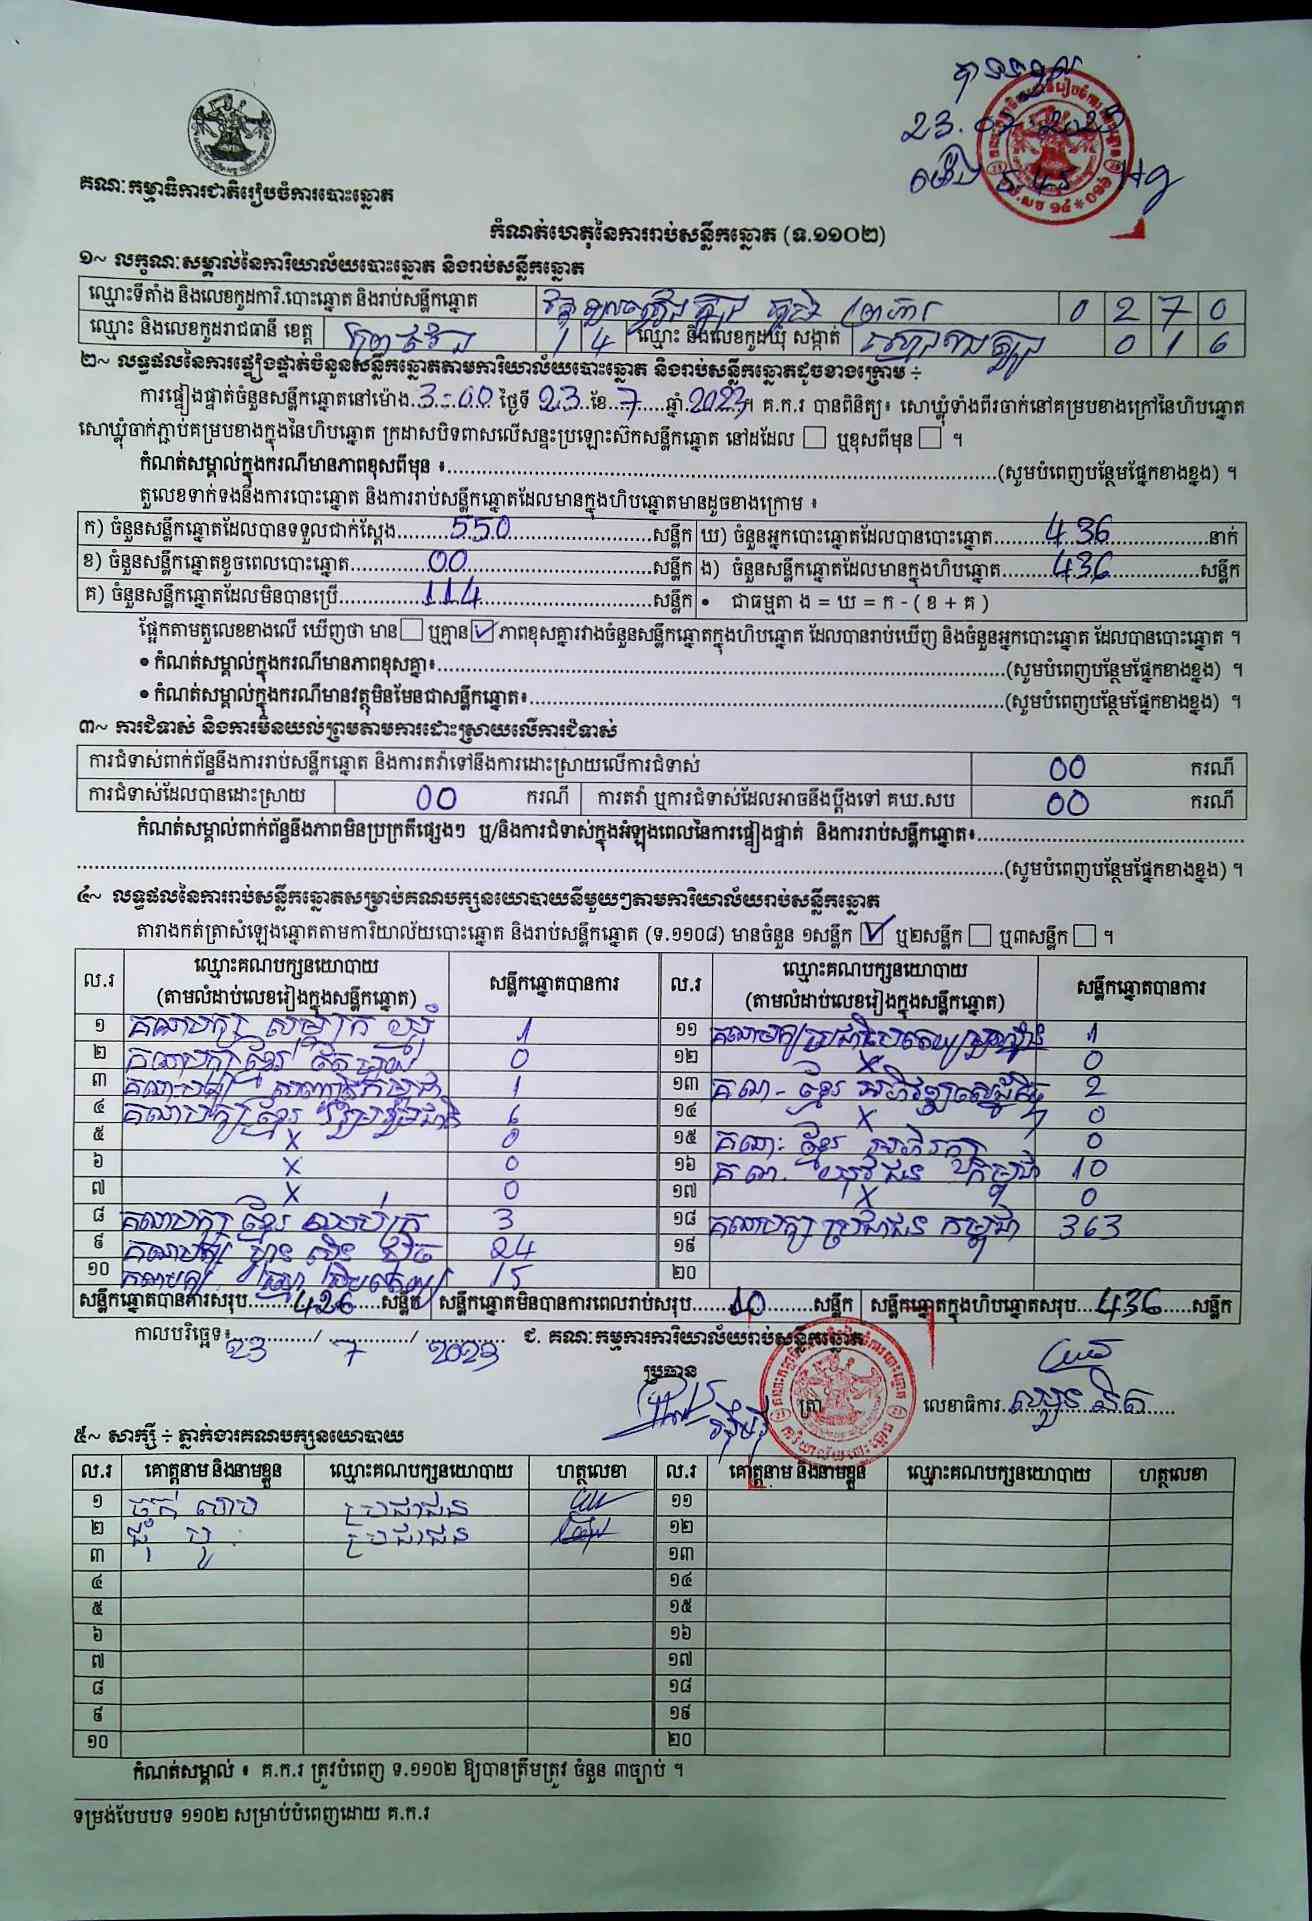 23.07.2023
គណៈកម្មាធិការជាតិរៀបចំការបោះឆ្នោត
កំណត់ហេតុនៃការរាប់សន្លឹកឆ្នោត (ទ.១១០២)
១~ លក្ខណៈសម្គាល់នៃការិយាល័យបោះឆ្នោត និងរាប់សន្លឹកឆ្នោត
ឈ្មោះទីតាំង និងលេខកូដការិ.បោះឆ្នោត និងរាប់សន្លឹកឆ្នោត 0 2 7 0
ឈ្មោះ និងលេខកូដរាជធានី ខេត្ត ព្រៃវែង 1 4 ឈ្មោះ និងលេខកូដឃុំ សង្កាត់ 0 1 6
២~ លទ្ធផលនៃការផ្ទៀងផ្ទាត់ចំនួនសន្លឹកឆ្នោតតាមការិយាល័យបោះឆ្នោត និងរាប់សន្លឹកឆ្នោតដូចខាងក្រោម ÷
ការផ្ទៀងផ្ទាត់ចំនួនសន្លឹកឆ្នោតនៅម៉ោង 3-00 ថ្ងៃទី 23 ខែ 7 ឆ្នាំ 2023 ។ គ.ក.រ បានពិនិត្យ៖ សោឃ្លុំទាំងពីរចាក់នៅគម្របខាងក្រៅនៃហិបឆ្នោត
សោឃ្លុំចាក់ភ្ជាប់គម្របខាងក្នុងនៃហិបឆ្នោត ក្រដាសបិទពាសលើសន្ទះប្រឡោះស៊កសន្លឹកឆ្នោត នៅដដែល ☐ ឬខុសពីមុន ☐ ។
កំណត់សម្គាល់ក្នុងករណីមានភាពខុសពីមុន ៖ (សូមបំពេញបន្ថែមផ្នែកខាងខ្នង) ។
តួលេខទាក់ទងនឹងការបោះឆ្នោត និងការរាប់សន្លឹកឆ្នោតដែលមានក្នុងហិបឆ្នោតមានដូចខាងក្រោម ៖
ក) ចំនួនសន្លឹកឆ្នោតដែលបានទទួលជាក់ស្ដែង 550 សន្លឹក ឃ) ចំនួនអ្នកបោះឆ្នោតដែលបានបោះឆ្នោត 436 នាក់
ខ) ចំនួនសន្លឹកឆ្នោតខូចពេលបោះឆ្នោត 00 សន្លឹក ង) ចំនួនសន្លឹកឆ្នោតដែលមានក្នុងហិបឆ្នោត 436 សន្លឹក
គ) ចំនួនសន្លឹកឆ្នោតដែលមិនបានប្រើ 114 សន្លឹក • ជាធម្មតា ង = ឃ = ក - ( ខ + គ )
ផ្អែកតាមតួលេខខាងលើ ឃើញថា មាន ☐ ឬគ្មាន ☑ ភាពខុសគ្នារវាងចំនួនសន្លឹកឆ្នោតក្នុងហិបឆ្នោត ដែលបានរាប់ឃើញ និងចំនួនអ្នកបោះឆ្នោត ដែលបានបោះឆ្នោត ។
• កំណត់សម្គាល់ក្នុងករណីមានភាពខុសគ្នា៖ (សូមបំពេញបន្ថែមផ្នែកខាងខ្នង) ។
• កំណត់សម្គាល់ក្នុងករណីមានវត្ថុមិនមែនជាសន្លឹកឆ្នោត៖ (សូមបំពេញបន្ថែមផ្នែកខាងខ្នង) ។
៣~ ការជំទាស់ និងការមិនយល់ព្រមតាមការដោះស្រាយលើការជំទាស់
ការជំទាស់ពាក់ព័ន្ធនឹងការរាប់សន្លឹកឆ្នោត និងការតវ៉ាទៅនឹងការដោះស្រាយលើការជំទាស់ 00 ករណី
ការជំទាស់ដែលបានដោះស្រាយ 00 ករណី ការតវ៉ា ឬការជំទាស់ដែលអាចនឹងប្ដឹងទៅ គឃ.សប 00 ករណី
កំណត់សម្គាល់ពាក់ព័ន្ធនឹងភាពមិនប្រក្រតីផ្សេងៗ ឬ/និងការជំទាស់ក្នុងអំឡុងពេលនៃការផ្ទៀងផ្ទាត់ និងការរាប់សន្លឹកឆ្នោត៖
(សូមបំពេញបន្ថែមផ្នែកខាងខ្នង) ។
៤~ លទ្ធផលនៃការរាប់សន្លឹកឆ្នោតសម្រាប់គណបក្សនយោបាយនីមួយៗតាមការិយាល័យរាប់សន្លឹកឆ្នោត
តារាងកត់ត្រាសំឡេងឆ្នោតតាមការិយាល័យបោះឆ្នោត និងរាប់សន្លឹកឆ្នោត (ទ.១១០៨) មានចំនួន ១សន្លឹក ☑ ឬ២សន្លឹក ☐ ឬ៣សន្លឹក ☐ ។
ល.រ ឈ្មោះគណបក្សនយោបាយ (តាមលំដាប់លេខរៀងក្នុងសន្លឹកឆ្នោត) សន្លឹកឆ្នោតបានការ ល.រ ឈ្មោះគណបក្សនយោបាយ (តាមលំដាប់លេខរៀងក្នុងសន្លឹកឆ្នោត) សន្លឹកឆ្នោតបានការ
១ 1 ១១ 1
២ 0 ១២ X 0
៣ 1 ១៣ 2
៤ 6 ១៤ X 0
៥ X 0 ១៥ 0
៦ X 0 ១៦ 10
៧ X 0 ១៧ X 0
៨ 3 ១៨ គណបក្ស ប្រជាជន កម្ពុជា 363
៩ 24 ១៩
១០ 15 ២០
សន្លឹកឆ្នោតបានការសរុប 426 សន្លឹក សន្លឹកឆ្នោតមិនបានការពេលរាប់សរុប 10 សន្លឹក សន្លឹកឆ្នោតក្នុងហិបឆ្នោតសរុប 436 សន្លឹក
កាលបរិច្ឆេទ៖ 23 / 7 / 2023 ជ. គណៈកម្មការការិយាល័យរាប់សន្លឹកឆ្នោត
ប្រធាន
ត្រា
លេខាធិការ
៥~ សាក្សី ÷ ភ្នាក់ងារគណបក្សនយោបាយ
ល.រ គោត្តនាម និងនាមខ្លួន ឈ្មោះគណបក្សនយោបាយ ហត្ថលេខា ល.រ គោត្តនាម និងនាមខ្លួន ឈ្មោះគណបក្សនយោបាយ ហត្ថលេខា
១ ប្រជាជន ១១
២ ប្រជាជន ១២
៣ ១៣
៤ ១៤
៥ ១៥
៦ ១៦
៧ ១៧
៨ ១៨
៩ ១៩
១០ ២០
កំណត់សម្គាល់ ៖ គ.ក.រ ត្រូវបំពេញ ទ.១១០២ ឱ្យបានត្រឹមត្រូវ ចំនួន ៣ច្បាប់ ។
ទម្រង់បែបបទ ១១០២ សម្រាប់បំពេញដោយ គ.ក.រ